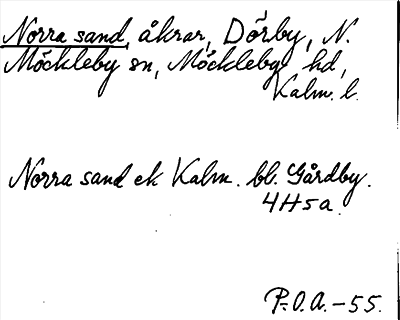 Norra sand, åkrar, Dörby, N.
Möckleby sn, Möckleby hd,
Kalm. l.
Norra sand ek Kalm. bl. Gårdby.
4H5a.
P.O.A. -55.